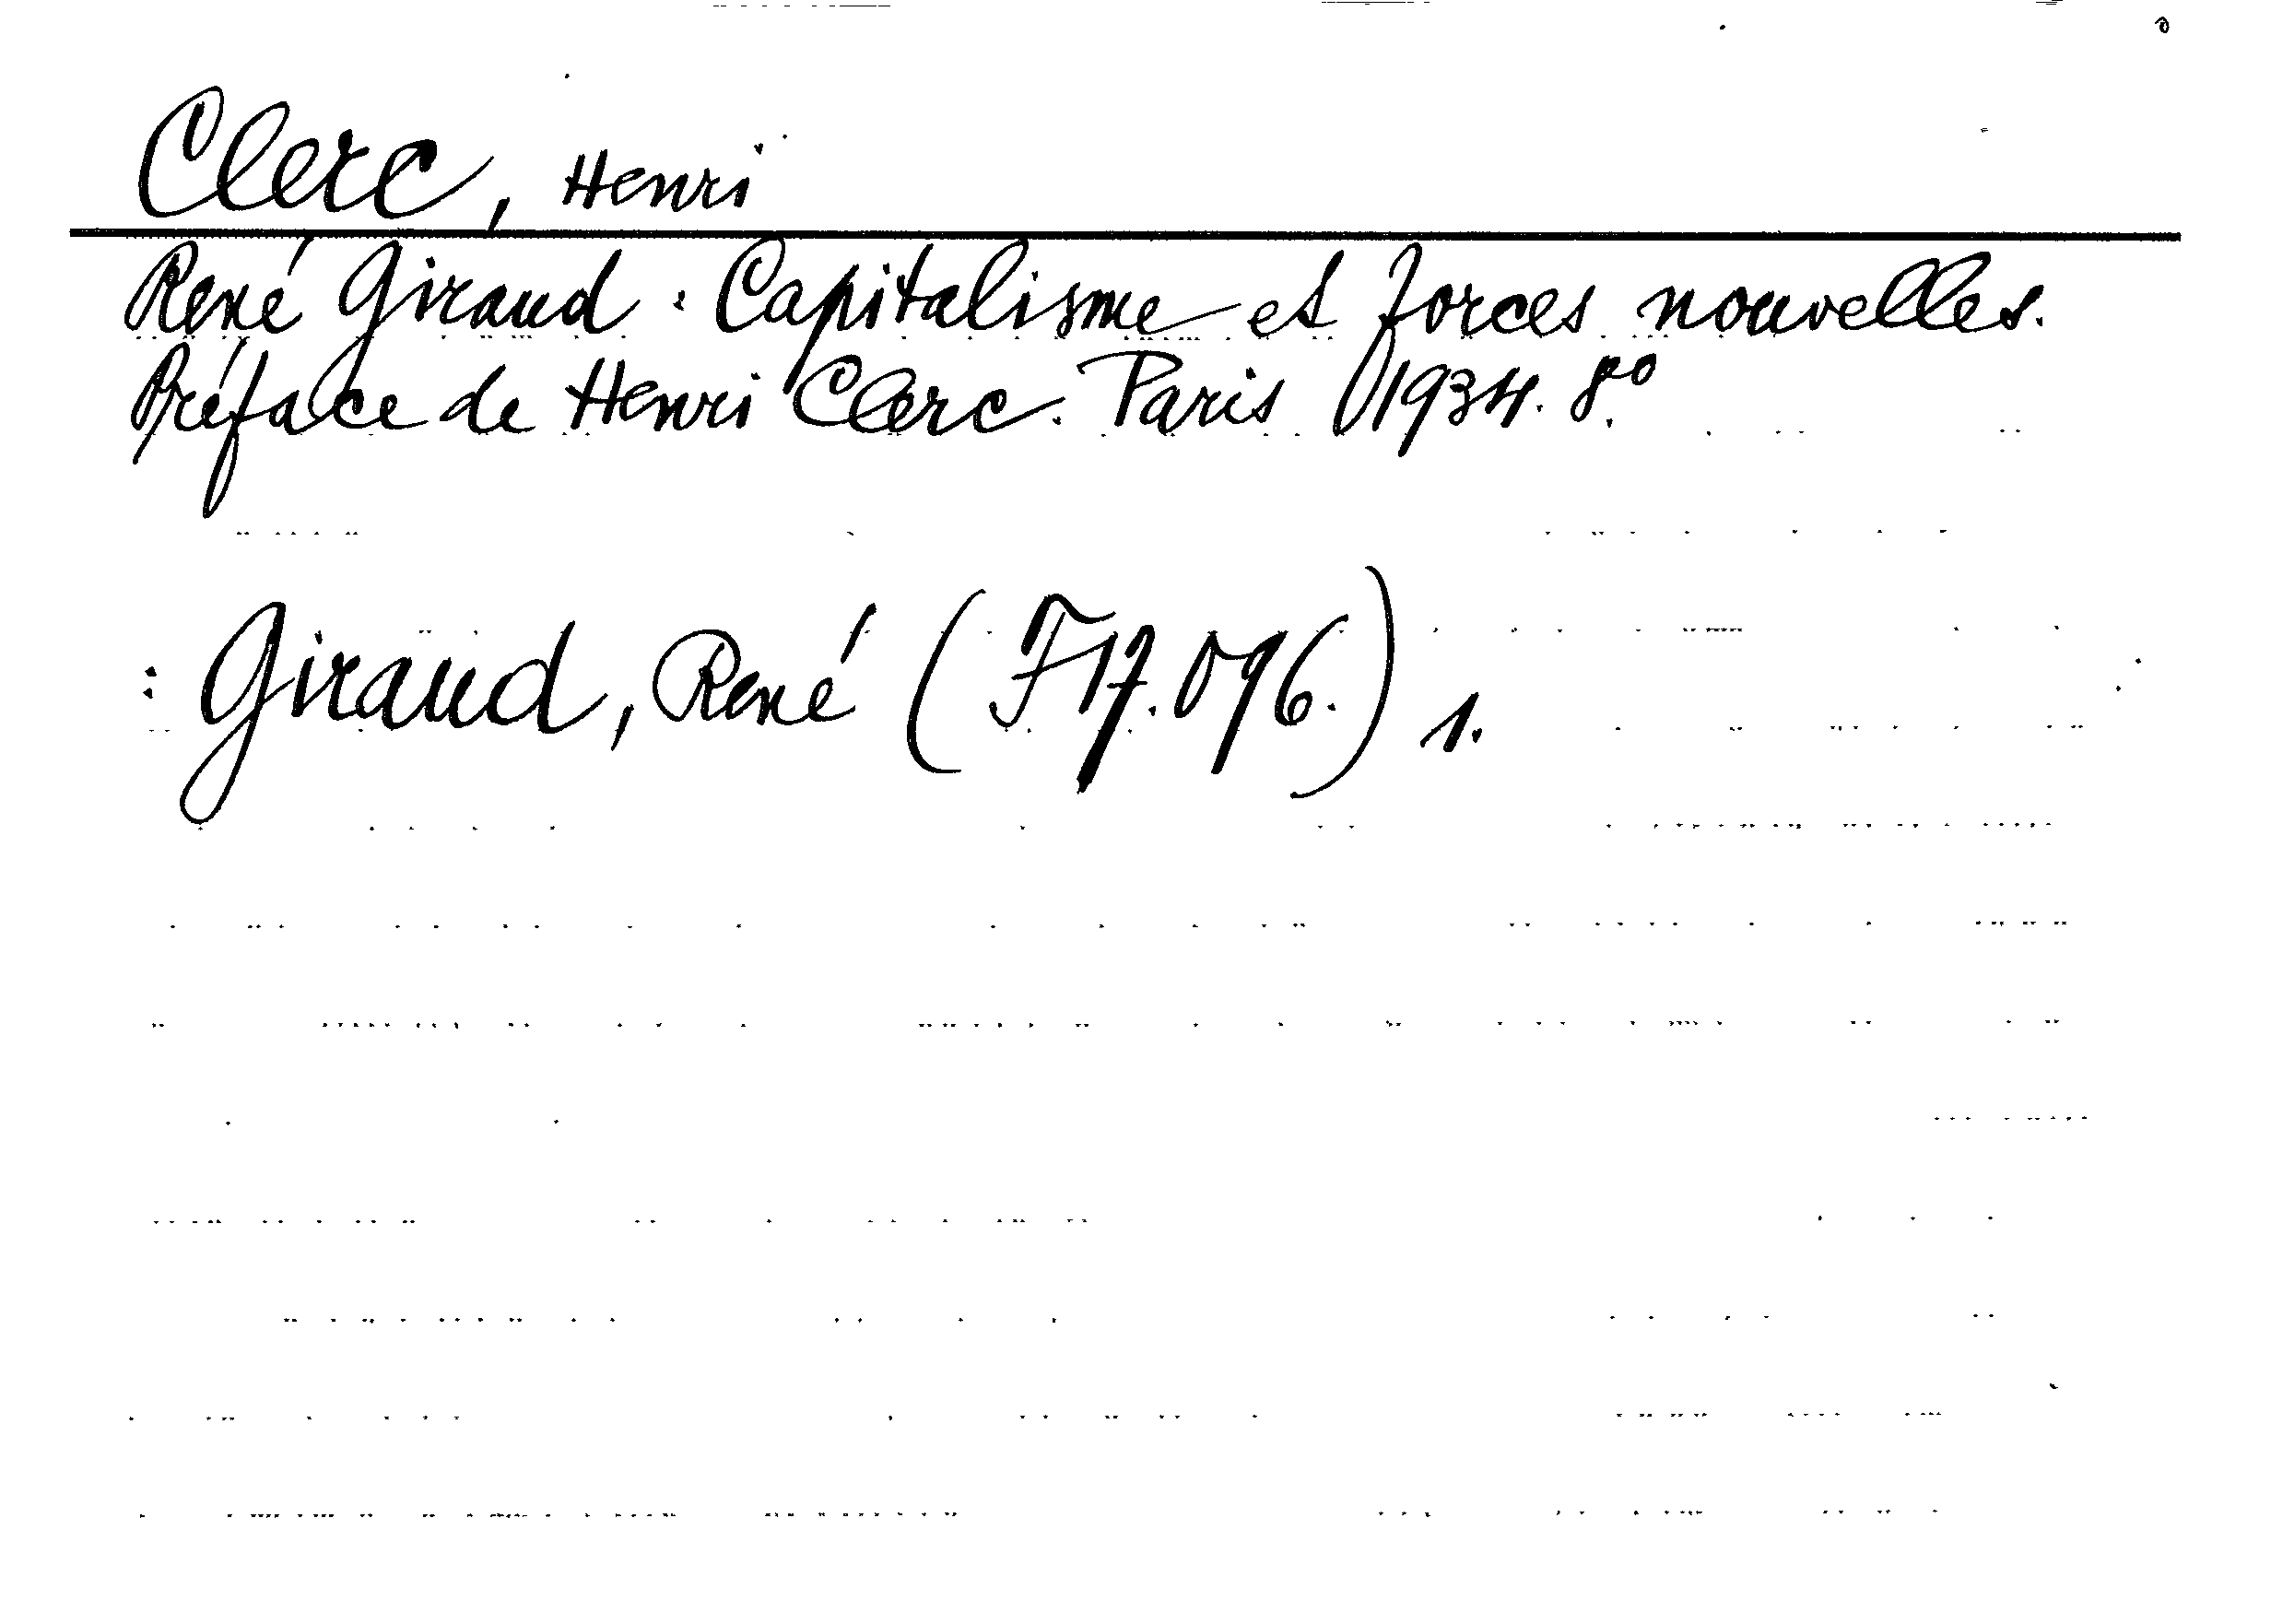 Clerc, Henri
René Giraud : Capitalisme et forces nouvelles.
Préface de Henri Clerc. Paris 1934. 8º.
: Giraud, René (F17.096.) 1.